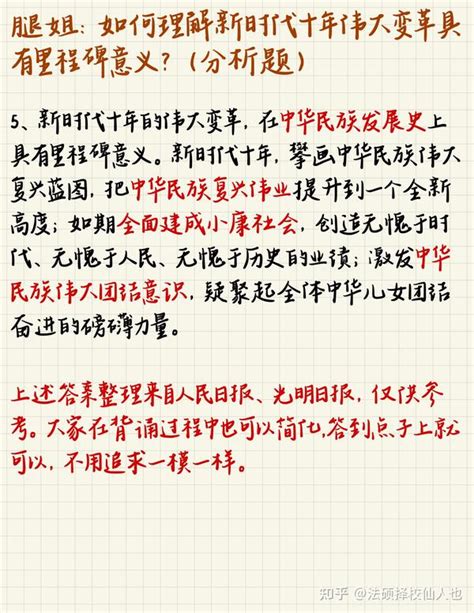 腿姐：如何理解新时代十年伟大变革具
有里程碑意义？（分析题）
5、新时代十年的伟大变革，在中华民族发展史上
具有里程碑意义。新时代十年，擘画中华民族伟大
复兴蓝图，把中华民族复兴伟业提升到一个全新
高度；如期全面建成小康社会，创造无愧于时
代、无愧于人民、无愧于历史的业绩；激发中华
民族伟大团结意识，凝聚起全体中华儿女团结
奋进的磅礴力量。
上述答案整理来自人民日报、光明日报，仅供参
考。大家在背诵过程中也可以简化，答到点子上就
可以，不用追求一模一样。
知乎 @法硕择校仙人也